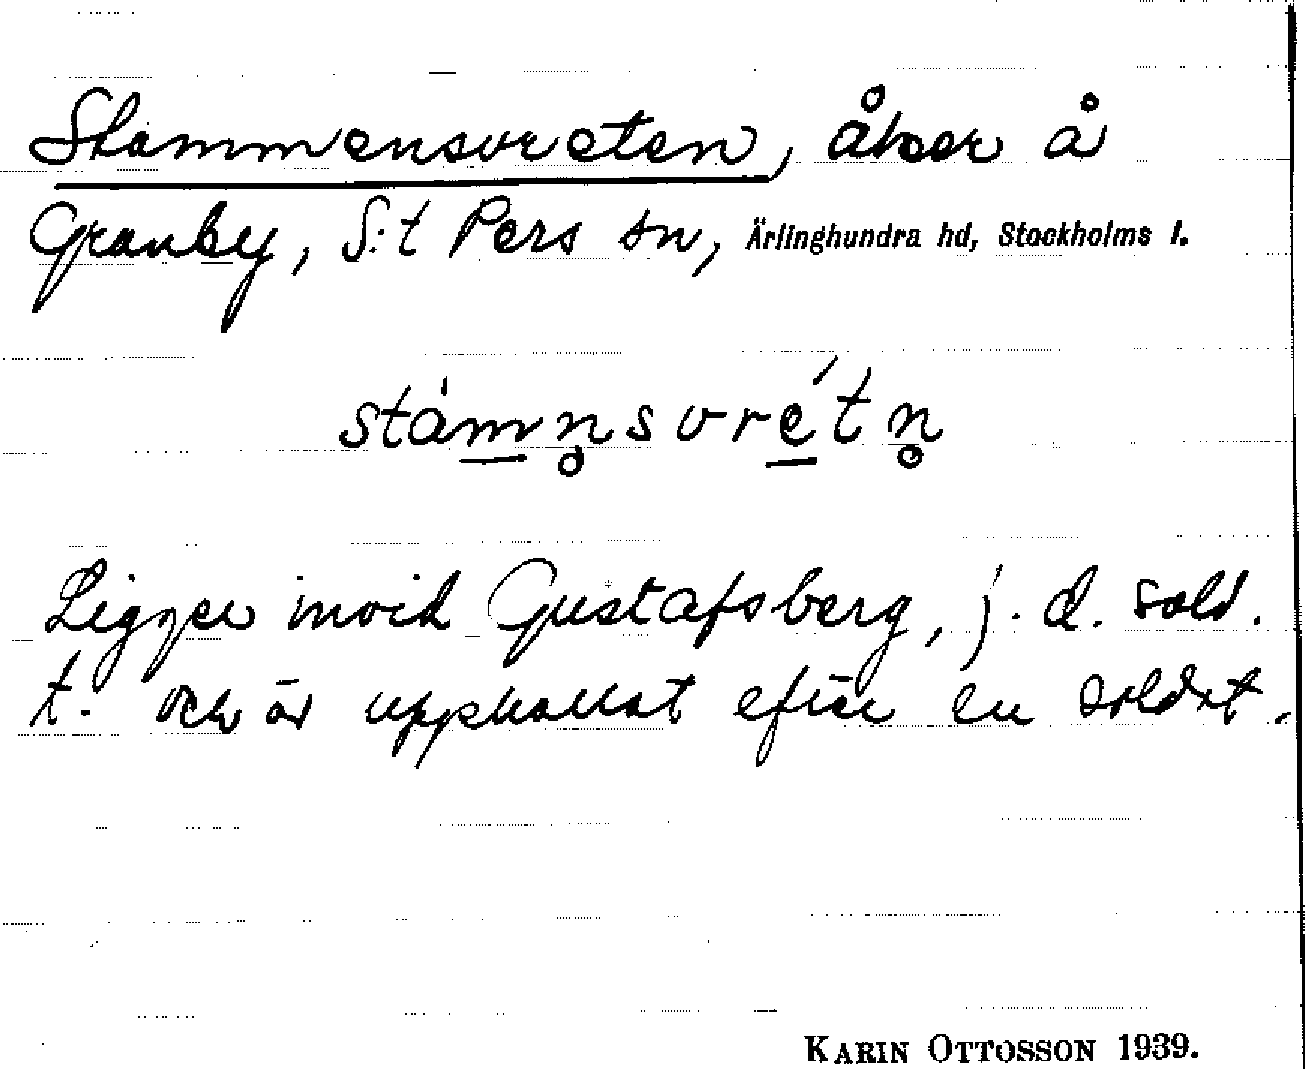 Stammensvreten, åker å
Granby, S:t Pers sn, Ärlinghundra hd, Stockholms l.
stámn̥svrét n̥
Ligger invid Gustafsberg, f. d. sold.
t. och är uppkallat efter en soldat.
KARIN OTTOSSON 1939.